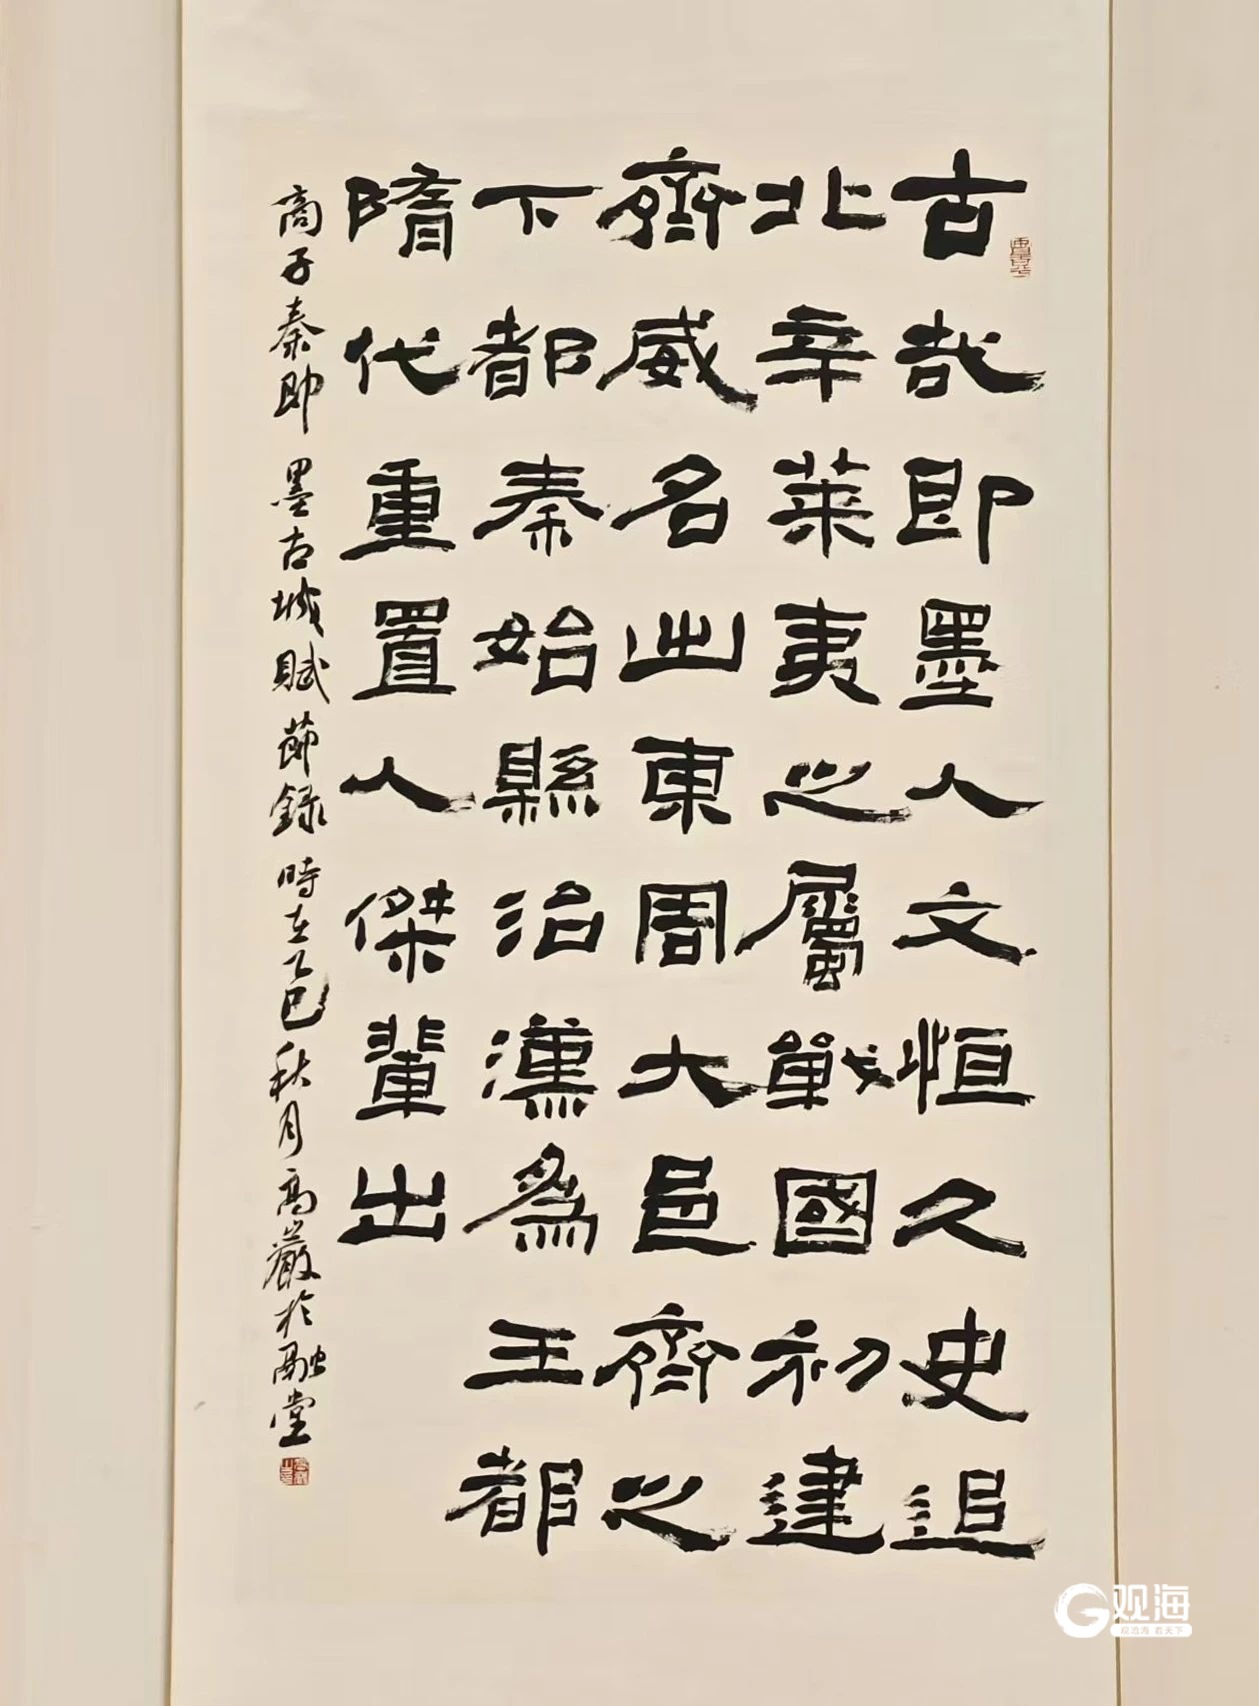 古哉即墨人文恒久史追
北辛萊夷之屬戰國初建
齊威名出東周大邑齊之
下都秦始縣治漢為王都
隋代重置人傑輩出
高子秦即墨古城賦節録時在乙巳秋月高巖於融堂
观海
观沧海 君天下